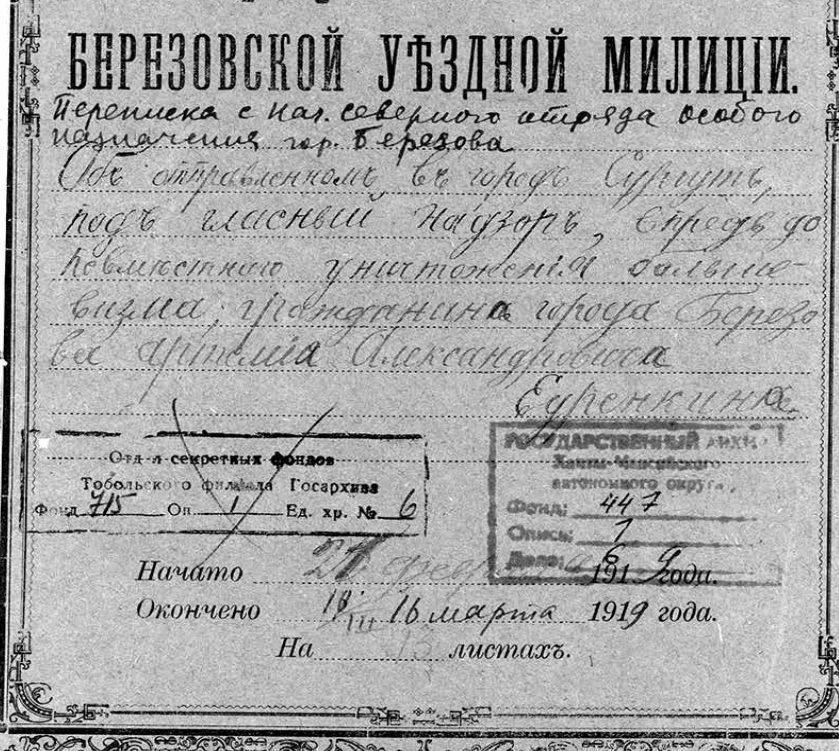 БЕРЕЗОВСКОЙ УѢЗДНОЙ МИЛИЦІИ.
Переписка с нач. северного отряда особого
назначения гор. Березова
Объ отправленномъ въ городъ Сургутъ,
подъ гласный надзоръ, впредь до
повмѣстнаго уничтоженія больше-
визма, гражданина города Березо
ва Артемія Александровича
Еуренкина
Отд-л секретных фондов
Тобольского филиала Госархива
Фонд 715 Оп. 1 Ед. хр. № 6
ГОСУДАРСТВЕННЫЙ АРХИВ
Ханты-Мансийского
автономного округа
Фонд: 447
Опись: 1
Дело: 6
Начато 21 февр 1919 года.
Окончено 18/III 16 марта 1919 года.
На 13 листахъ.